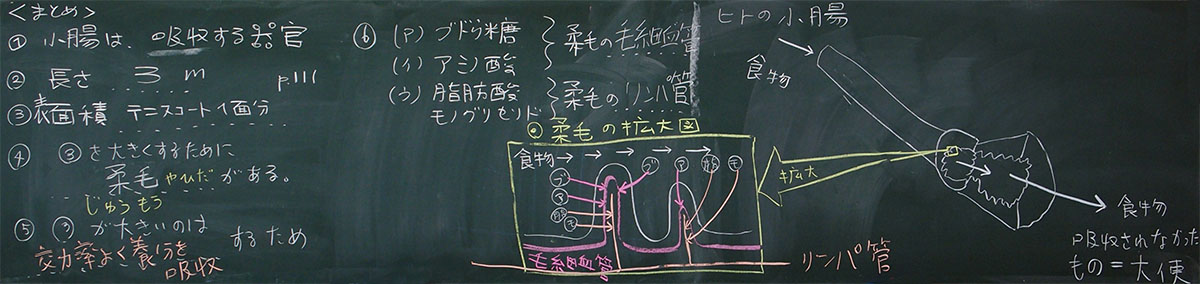 <まとめ>
① 小腸は、吸収する器官
② 長さ 3 m p111
③ 表面積 テニスコート1面分
④ ③を大きくするために
柔毛やひだがある。
じゅうもう
⑤ ③が大きいのは
効率よく養分を
吸収
するため
⑥ (ア) ブドウ糖
(イ) アミノ酸
柔毛の毛細血管
(ウ) 脂肪酸
モノグリセリド
柔毛のリンパ管
◎ 柔毛の拡大図
食物→ → → → →
ブ ア 脂 モ
ブ ア
脂
モ
毛細血管
リンパ管
拡大
ヒトの小腸
食物
食物
吸収されなかった
もの=大便